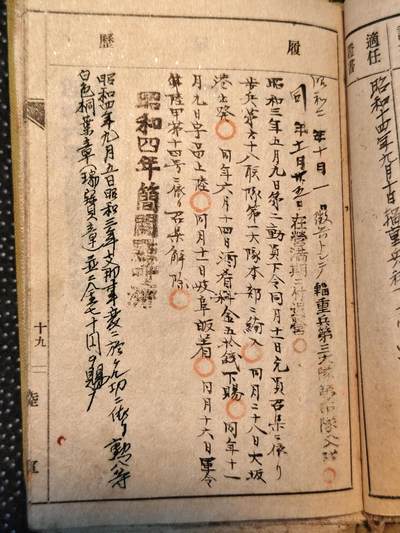 適任
昭和十四年九月十日
履歴
昭和二年十月一 徴兵トシテ輜重兵第三大隊 中隊入隊
同年十一月廿五日在營滿期ニ付退營
昭和三年五月九日第二動員下令同月十一日充員召集ニ依リ
歩兵第六十八聯隊第一大隊本部ニ編入 同月二十八日大坂
港上陸 同年六月十四日酒肴料金五十銭下賜 同年十一
月九日宇品上陸 同月十一日岐阜皈着 同月十六日軍令
陸甲第十四号ニ依リ召集解除
昭和四年簡閲點呼済
昭和四年九月五日昭和三年支那事変ニ於ケル功ニ依リ勲八等
白色桐葉章(瑞寶章)並ニ金七十円ヲ賜フ
十九
陸軍